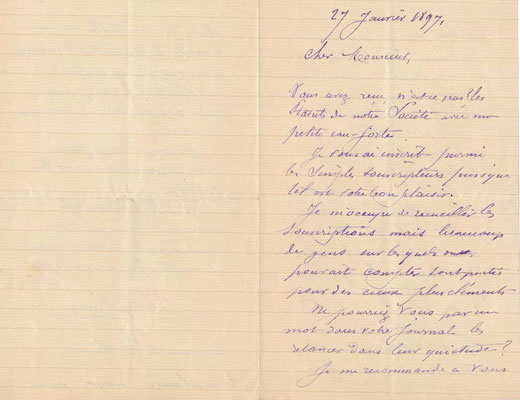 27 Janvier 1897,
Cher Monsieur,
Vous avez reçu, n'est-ce pas? les
Statuts de notre Société avec ma
petite eau-forte.
Je vous ai inscrit parmi
les simples souscripteurs puisque
tel est votre bon plaisir.
Je m'occupe de recueillir les
souscriptions mais beaucoup
de gens sur lesquels on
pouvait compter sont partis
pour des cieux plus cléments
Ne pourriez vous par un
mot dans votre journal les
relancer dans leur quiétude?
Je me recommande à vous